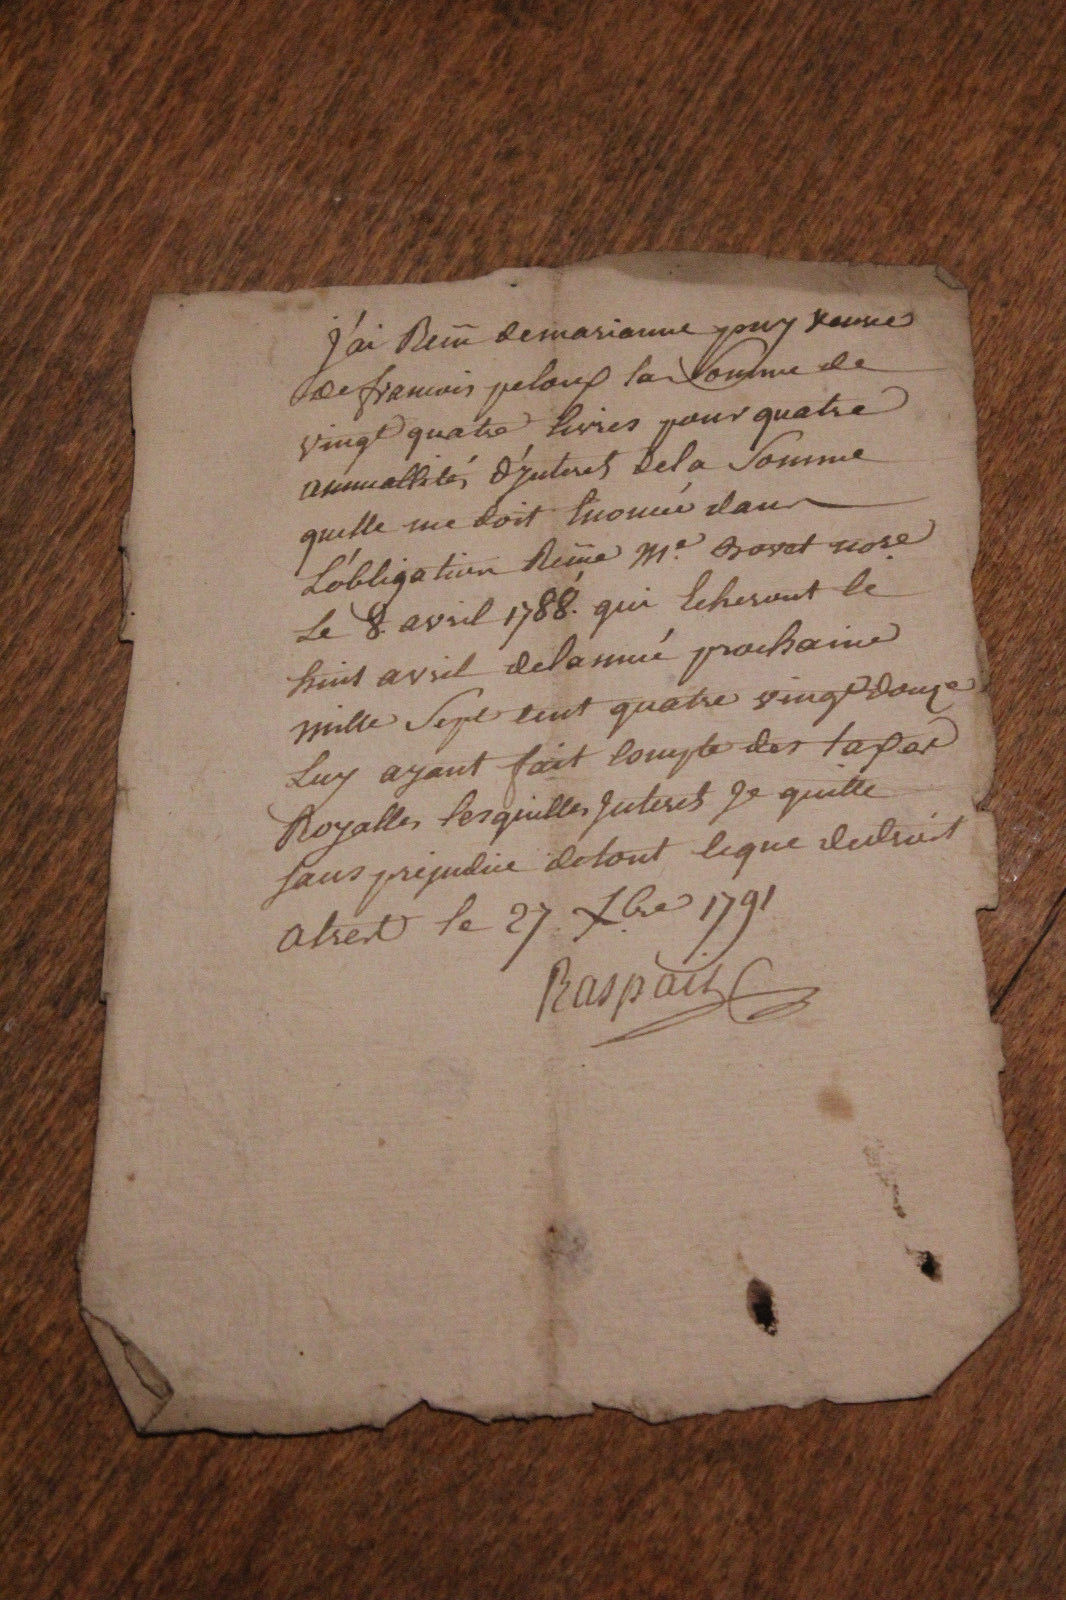 j'ai Reçu de marianne pouy veuve
de francois peloux la Somme de
vingt quatre livres pour quatre
annuallités d'jnterest dela Somme
quelle me doit enoncée dans
L'obligation Reçue Me. nore
Le 8. avril 1788. qui echeront le
huit avril delannée prochaine
mille Sept cent quatre vingt douze
Luy ayant fait compte des taxes
Royalles lesquelles jnterest je quitte
sans prejudice detout ceque dedroit
le 27. Xbre 1791
Raspail